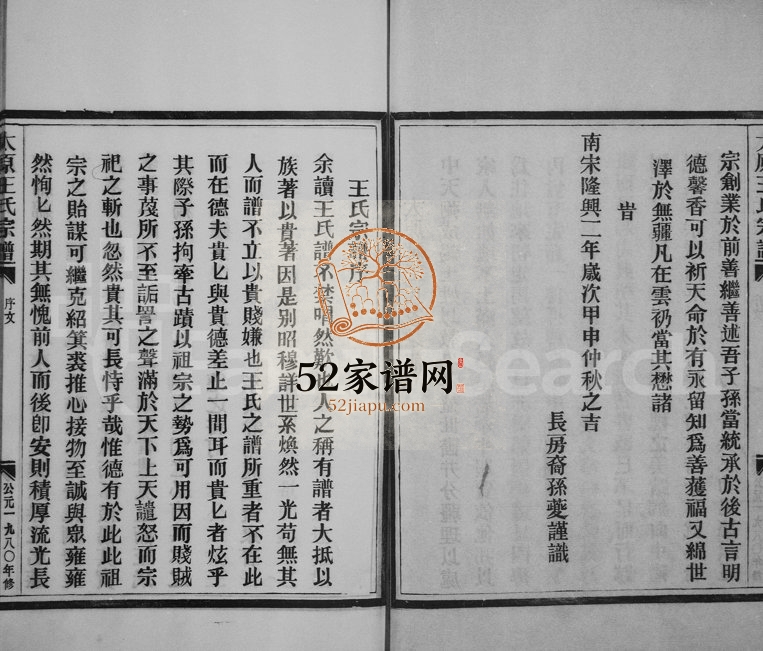 宗創業於前善繼善述吾子孫當統承於後古言明
德馨香可以祈天命於有永留知爲善獲福又綿世
澤於無疆凡在雲礽當其懋諸
旹
南宋隆興二年嵗次甲申仲秋之吉
長房裔孫夔謹識
太原王氏宗譜
序文
公元一九八〇年修
王氏宗譜序
余讀王氏譜不禁喟然歎也人之稱有譜者大抵以
族著以貴著因是别昭穆詳世系煥然一光苟無其
人而譜不立以貴賤嫌也王氏之譜所重者不在此
而在德夫貴匕與貴德差止一間耳而貴匕者炫乎
其際子孫拘牽古蹟以祖宗之勢爲可用因而賤賊
之事蔑所不至詬詈之聲滿於天下上天譴怒而宗
祀之斬也忽然貴其可長恃乎哉惟德有於此此祖
宗之貽謀可繼克紹箕裘推心接物至誠與眾雍雍
然恂匕然期其無愧前人而後卽安則積厚流光長
太原王氏宗譜
52家谱网
52jiapu.com
Search